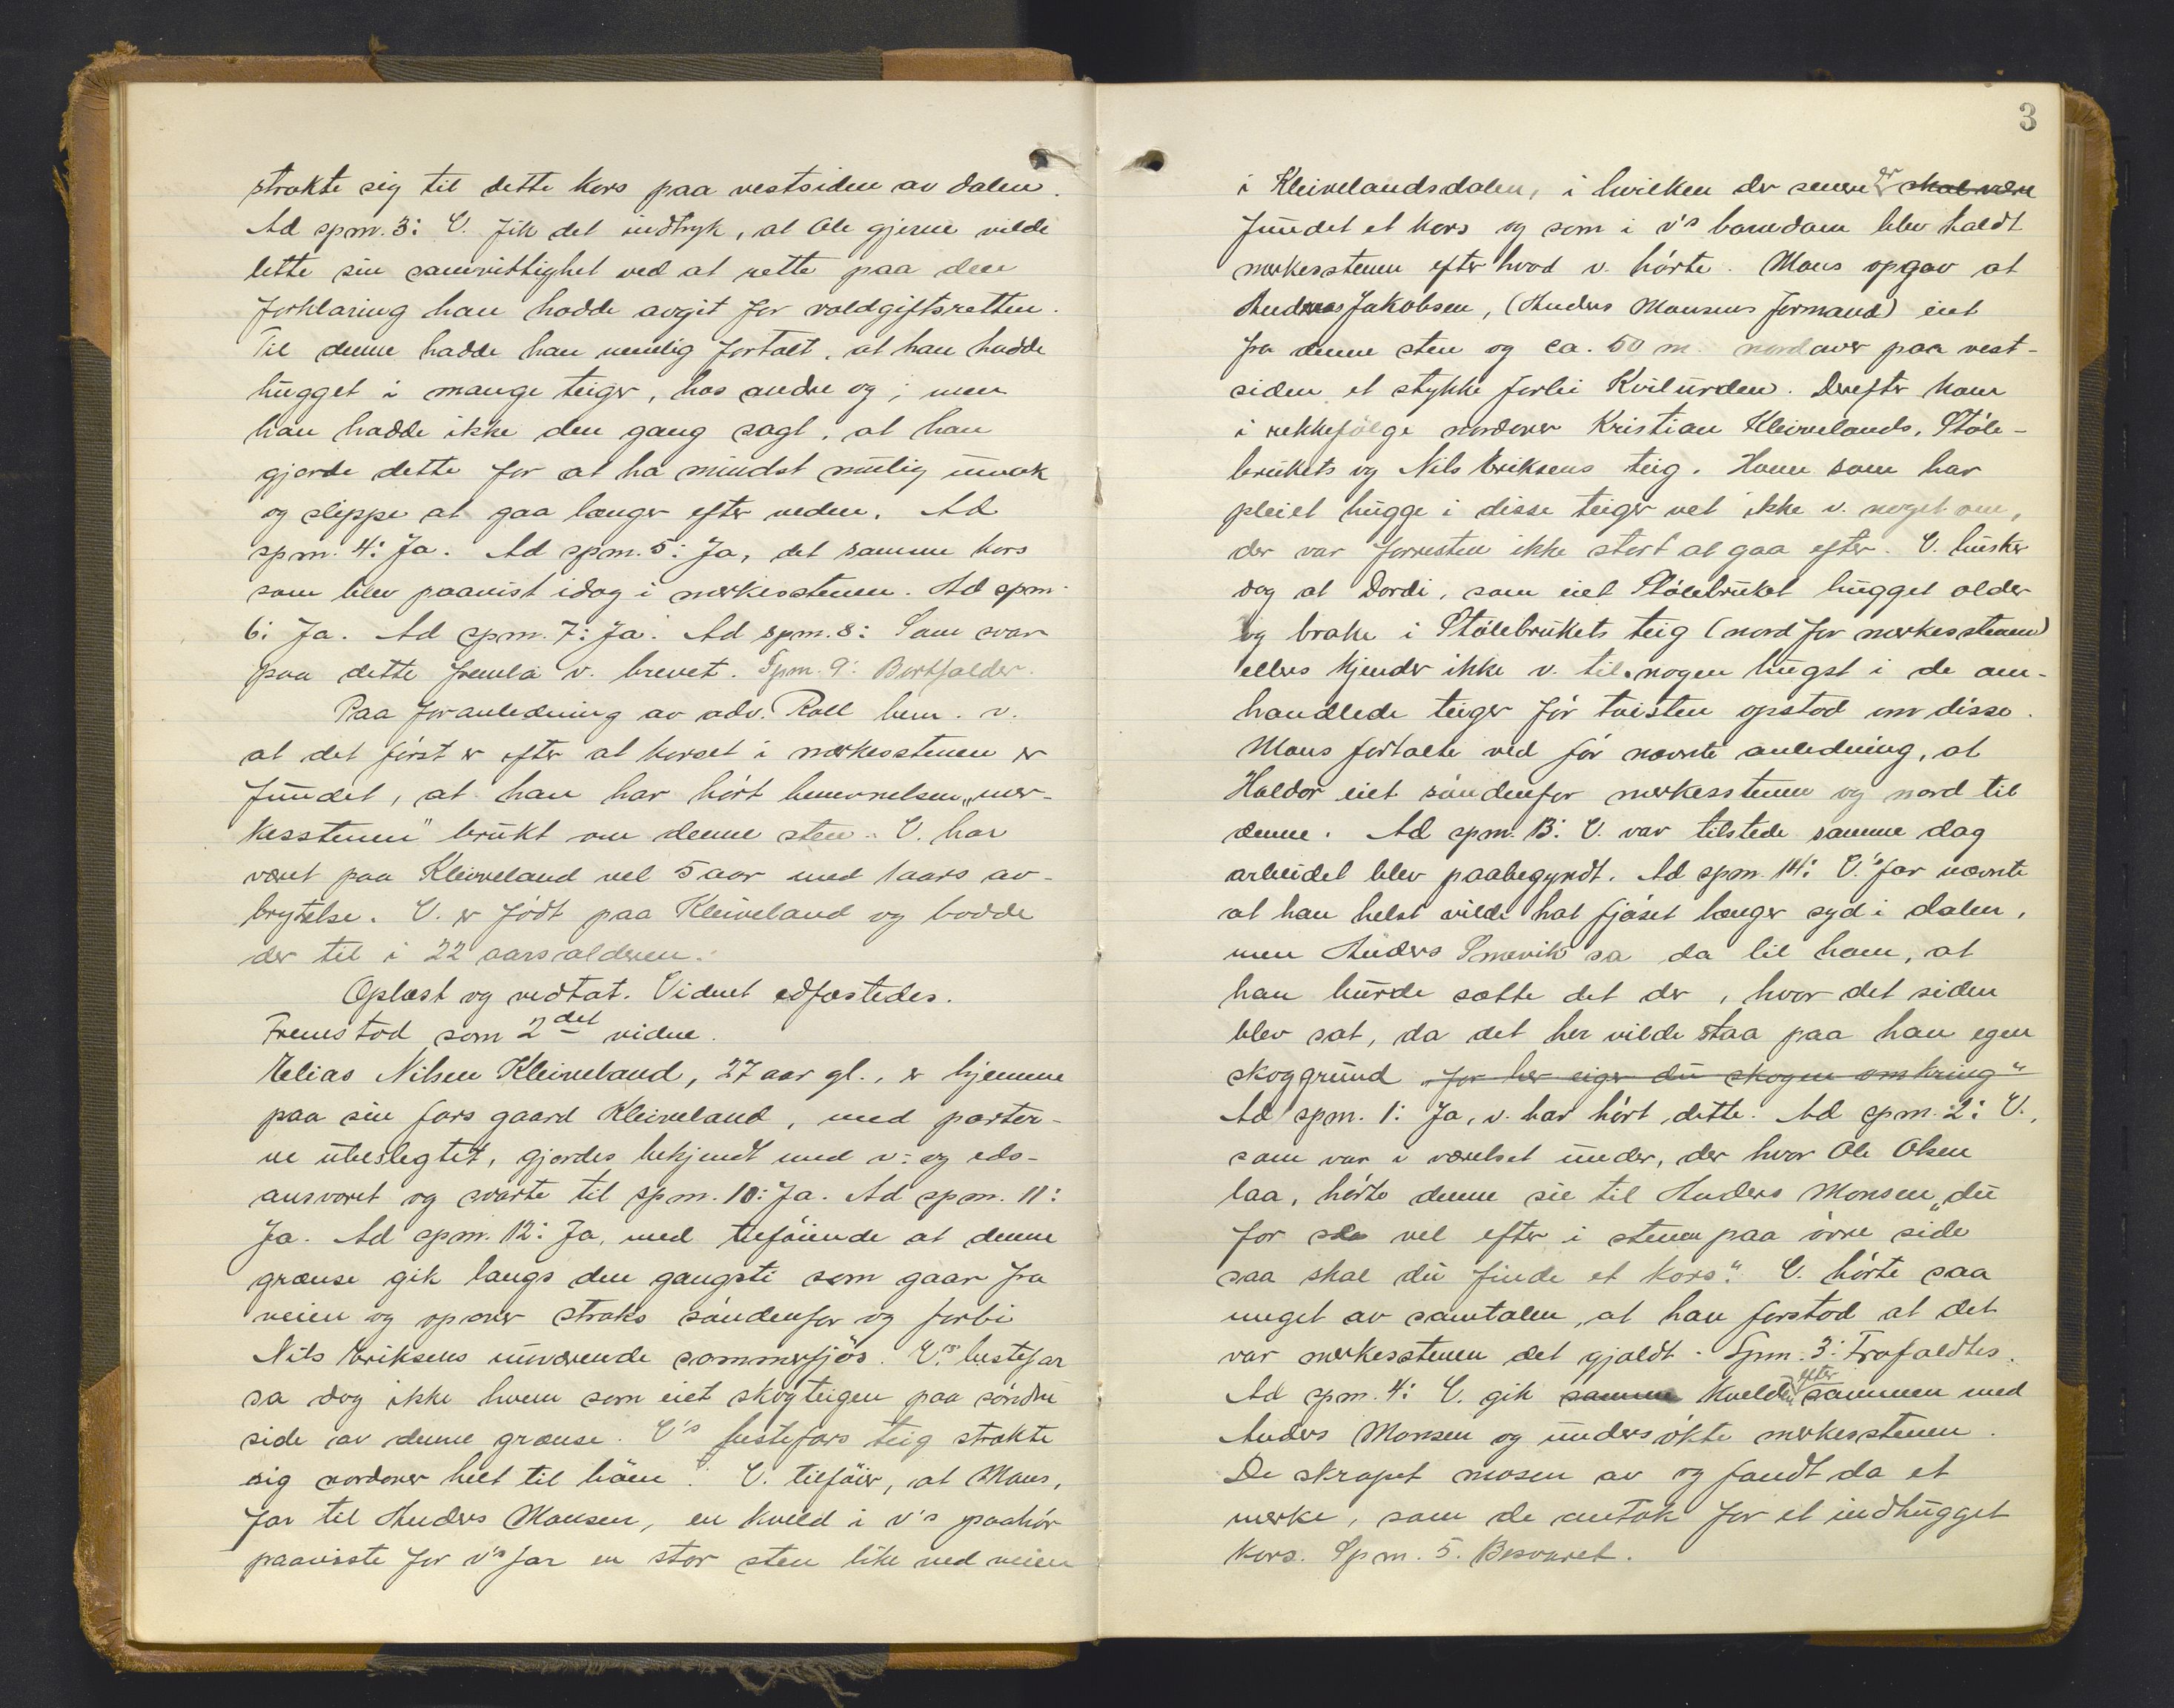 strakte sig til dette kors paa vestsiden av dalen.
Ad spm. 3: V. fik det indtryk, at Ole gjerne vilde
lette sin samvittighet ved at rette paa den
forklaring han hadde avgit for voldgiftsretten.
Til denne hadde han nemlig fortalt, at han hadde
hugget i mange teiger, hos andre og; men
han hadde ikke den gang sagt, at han
gjorde dette for at ha mindst mulig umak
og slippe at gaa længer efter veden. Ad
spm. 4: Ja. Ad spm. 5: Ja, det samme kors
som blev paavist idag i merkesstenen. Ad spm.
6: Ja. Ad spm. 7: Ja. Ad spm. 8: Som svar
paa dette fremla v. brevet. Spm. 9: Bortfalder.
Paa foranledning av adv. Roll bem. v.
at det först er efter at korset i merkesstenen er
fundet, at han har hört benevnelsen „mer-
kesstenen" brukt om denne sten. V. har
været paa Kleiveland vel 5 aar med 1 aars av-
brytelse. V. er födt paa Kleiveland og bodde
der til i 22 aarsalderen.
Oplæst og vedtat. Vidnet edfæstedes.
Fremstod som 2det vidne.
Elias Nilsen Kleiveland, 27 aar gl., er hjemme
paa sin fars gaard Kleiveland, med parter-
ne ubeslegtet, gjordes bekjendt med v: og eds-
ansvaret og svarte til spm. 10: Ja. Ad spm. 11:
Ja. Ad spm. 12: Ja, med tilföiende at denne
grænse gik langs den gangsti som gaar fra
veien og opover straks söndenfor og forbi
Nils Eriksens nuværende sommerfjös. V's bestefar
sa dog ikke hvem som eiet skogteigen paa söndre
side av denne grænse. V's bestefars teig strakte
sig nordover helt til böen. V. tilföier, at Mons,
far til Anders Monsen, en kveld i v's paahör
paaviste for v's far en stor sten like ved veien
3
i Kleivelandsdalen, i hvilken der senere er skal være
fundet et kors og som i v's barndom blev kaldt
merkesstenen efter hvad v. hörte. Mons opgav at
Andreas Jakobsen, (Anders Monsens formand) eiet
fra denne sten og ca. 50 m. nordover paa vest-
siden et stykke forbi Kvilurden. Derefter kom
i rekkefölge nordover Kristian Kleivelands, Stöle-
brukets og Nils Eriksens teig. Hvem som har
pleiet hugge i disse teiger vet ikke v. noget om,
der var forresten ikke stort at gaa efter. V. husker
dog at Dordi, som eiet Stölebruket hugget older
og brake i Stölebrukets teig (nord for merkesstenen)
ellers kjender ikke v. til nogen hugst i de om-
handlede teiger för tvisten opstod om disse.
Mons fortalte ved för nævnte anledning, at
Haldor eiet söndenfor merkesstenen og nord til
denne. Ad spm. 13: V. var tilstede samme dag
arbeidet blev paabegyndt. Ad spm. 14: V.'s far nævnte
at han helst vilde hat fjöset længer syd i dalen,
men Anders Smevik sa da til ham, at
han burde sætte det der, hvor det siden
blev sat, da det her vilde staa paa han egen
skoggrund „for her eiger du skogen omkring"
Ad spm. 1: Ja, v. har hört dette. Ad spm. 2: V.,
som var i værelset under, der hvor Ole Olsen
laa, hörte denne sie til Anders Monsen „du
for sla vel efter i stenen paa övre side
saa skal du finde et kors". V. hörte saa
meget av samtalen, at han forstod at det
var merkesstenen det gjaldt. Spm. 3: Frafaldtes.
Ad spm. 4: V. gik samme kvelden efter sammen med
Anders Monsen og undersökte merkesstenen.
De skrapet mosen av og fandt da et
merke, som de antok for et indhugget
kors. Spm. 5. Besvaret.